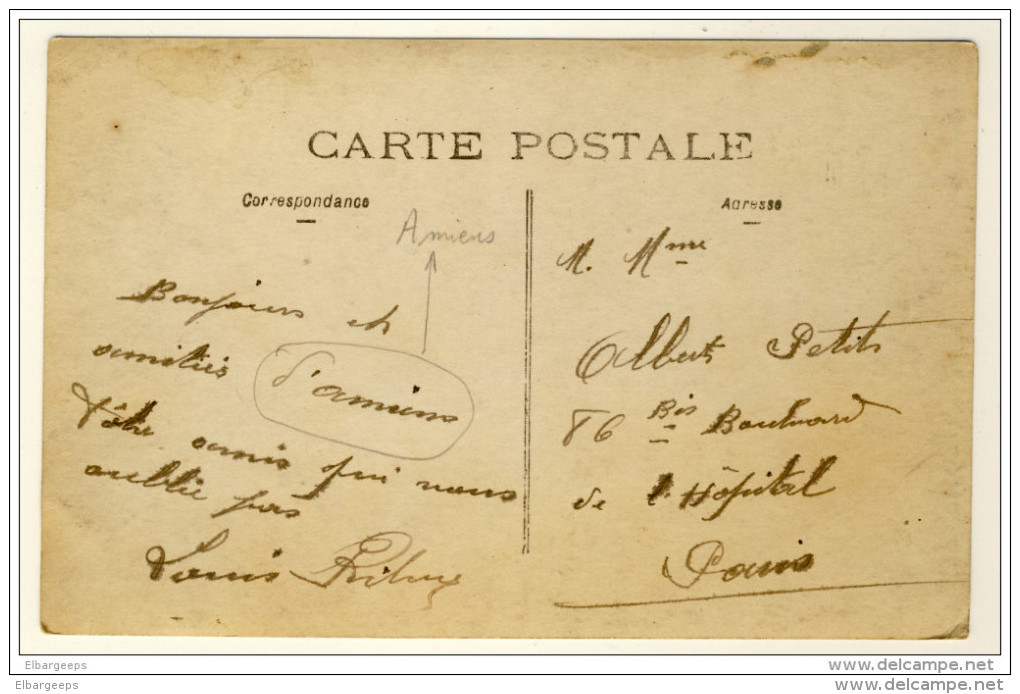 CARTE POSTALE
Correspondance
Adresse
Amiens
Bonjour et
amitiés d'amiens
Vôtre amis qui vous
oublie pas
Louis
M. Mme
Albert Petit
86 Bis Boulvard
de l'Hôpital
Paris
Elbargeeps
www.delcampe.net
Elbargeeps
www.delcampe.net